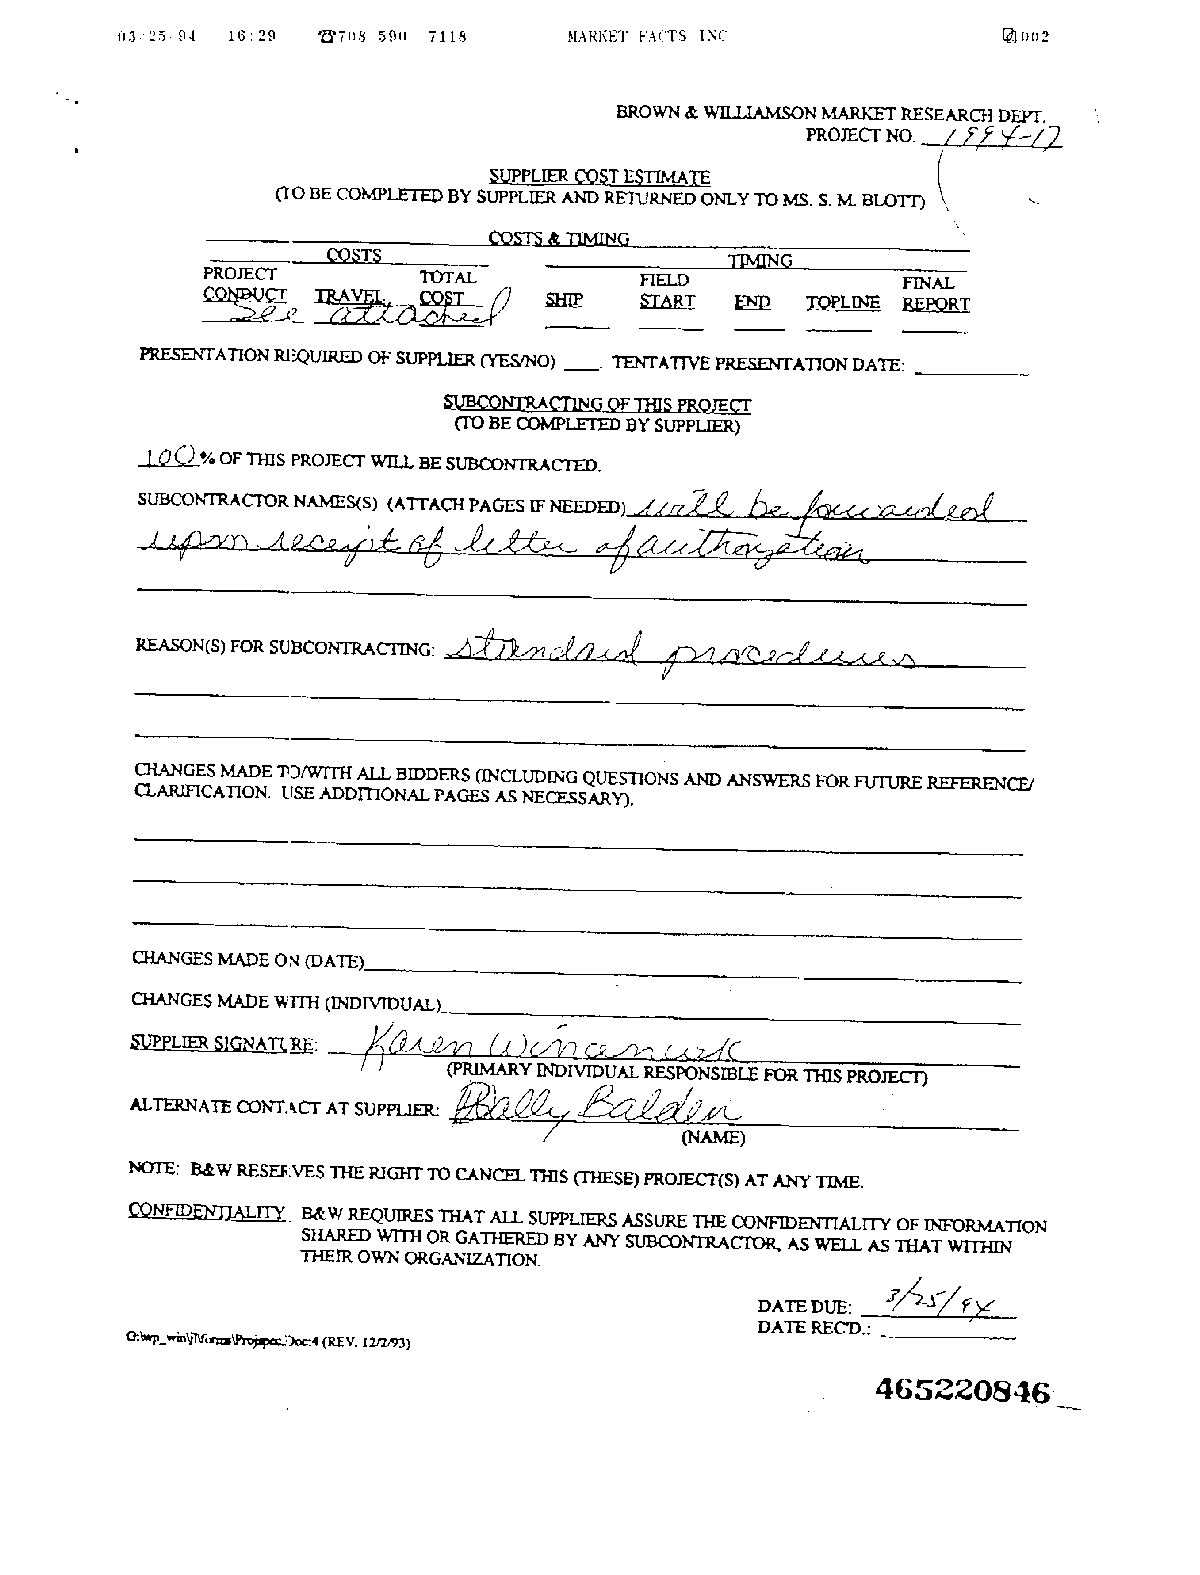 03-25-94 16:29 ☎708 590 7118 MARKET FACTS INC 002
BROWN & WILLIAMSON MARKET RESEARCH DEPT.
PROJECT NO. 1994-17
SUPPLIER COST ESTIMATE
(TO BE COMPLETED BY SUPPLIER AND RETURNED ONLY TO MS. S. M. BLOTT)
COSTS & TIMING
COSTS TIMING
PROJECT TOTAL FIELD FINAL
CONDUCT TRAVEL COST SHIP START END TOPLINE REPORT
See attached
PRESENTATION REQUIRED OF SUPPLIER (YES/NO) ___. TENTATIVE PRESENTATION DATE: ___
SUBCONTRACTING OF THIS PROJECT
(TO BE COMPLETED BY SUPPLIER)
100 % OF THIS PROJECT WILL BE SUBCONTRACTED.
SUBCONTRACTOR NAMES(S) (ATTACH PAGES IF NEEDED) will be forwarded
upon receipt of letter of authorization
REASON(S) FOR SUBCONTRACTING: standard procedures
CHANGES MADE TO/WITH ALL BIDDERS (INCLUDING QUESTIONS AND ANSWERS FOR FUTURE REFERENCE/
CLARIFICATION. USE ADDITIONAL PAGES AS NECESSARY).
CHANGES MADE ON (DATE)
CHANGES MADE WITH (INDIVIDUAL)
SUPPLIER SIGNATURE: Karen
(PRIMARY INDIVIDUAL RESPONSIBLE FOR THIS PROJECT)
ALTERNATE CONTACT AT SUPPLIER: Balden
(NAME)
NOTE: B&W RESERVES THE RIGHT TO CANCEL THIS (THESE) PROJECT(S) AT ANY TIME.
CONFIDENTIALITY B&W REQUIRES THAT ALL SUPPLIERS ASSURE THE CONFIDENTIALITY OF INFORMATION
SHARED WITH OR GATHERED BY ANY SUBCONTRACTOR, AS WELL AS THAT WITHIN
THEIR OWN ORGANIZATION.
DATE DUE: 3/25/94
DATE REC'D.:
(REV. 12/2/93)
465220846